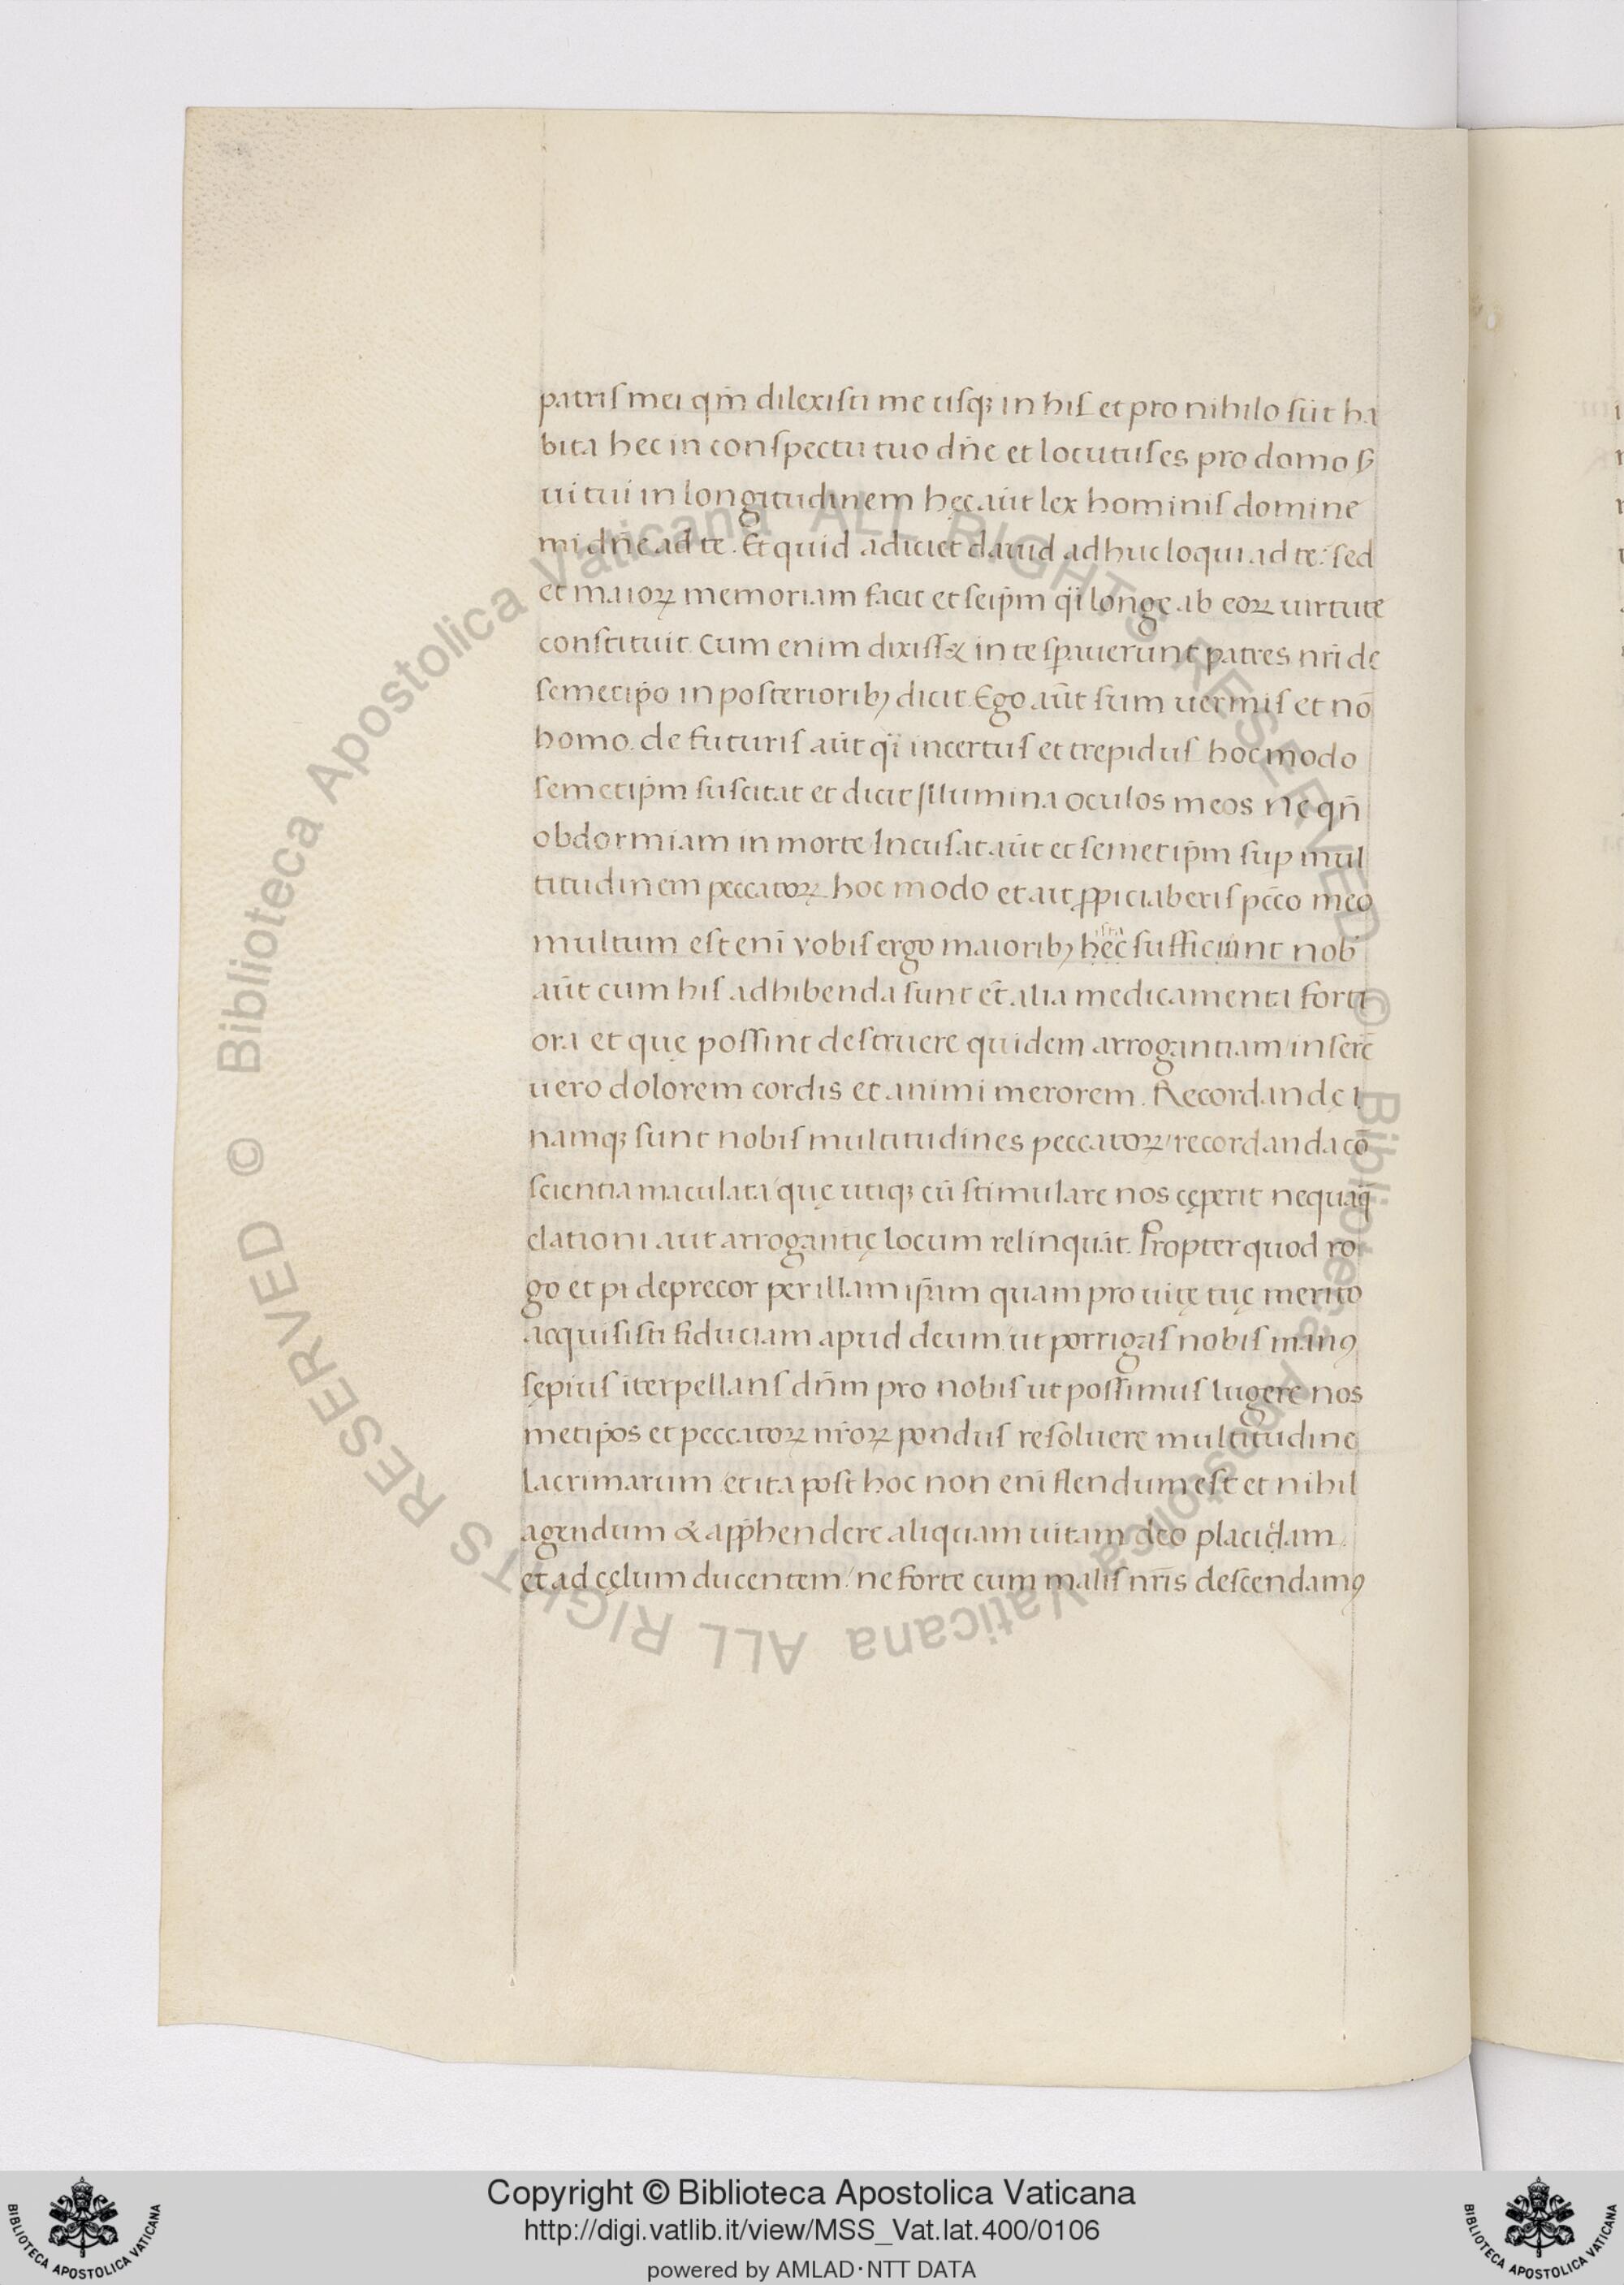 patris mei qm̄ dilexisti me usq; in his et pro nihilo sūt ha
bita hec in conspectu tuo dn̄e et locutus es pro domo ẜ
ui tui in longitudinem hęc aūt lex hominis domine
mi dn̄e ad te. Et quid adiciet dauid adhuc loqui ad te: sed
et maioꝝ memoriam facit et seip̄m q̄i longe ab eoꝝ uirtute
constituit. Cum enim dixiss& in te sꝑauerunt patres nr̄i dę
semetip̄o in posteriorib; dicit. Ego aūt sum uermis et nō
homo. de futuris aūt q̄i incertus et trepidus hoc modo
semetip̄m suscitat et dicit Illumina oculos meos ne qn̄
obdormiam in morte Incusat aūt et semetip̄m suꝑ mul
titudinem peccatoꝝ hoc modo et ait ꝓpiciaberis pc̄co meo
multum est enī vobis ergo maiorib; hęc sufficiunt nob̄
aūt cum his adhibenda sunt et̄ alia medicamenta forti
ora et quę possint destruere quidem arrogantiam/inserē
uero dolorem cordis et animi merorem. Recordandę
namq; sunt nobis multitudines peccatoꝝ/recordanda cō
scientia maculata/quę utiq; cū stimulare nos cęperit nequaq̄
elationi aut arrogantię locum relinquāt. Propter quod ro
go et pi deprecor per illam ip̄am quam pro uitę tuę merito
acquisisti fiduciam apud deum/ut porrigas nobis manꝰ
sępius īterpellans dn̄m pro nobis ut possimus lugere nos
metip̄os et peccatoꝝ nr̄oꝝ pondus resoluere multitudine
lacrimarum et ita post hoc non enī flendum est et nihil
agendum & app̄hendere aliquam uitam deo placidam
et ad cęlum ducentem/ne forte cum malis nr̄is descendamꝰ
© Biblioteca Apostolica Vaticana ALL RIGHTS RESERVED © Biblioteca Apostolica Vaticana ALL RIGHTS RESERVED
Copyright © Biblioteca Apostolica Vaticana
http://digi.vatlib.it/view/MSS_Vat.lat.400/0106
powered by AMLAD·NTT DATA
BIBLIOTECA APOSTOLICA VATICANA
BIBLIOTECA APOSTOLICA VATICANA